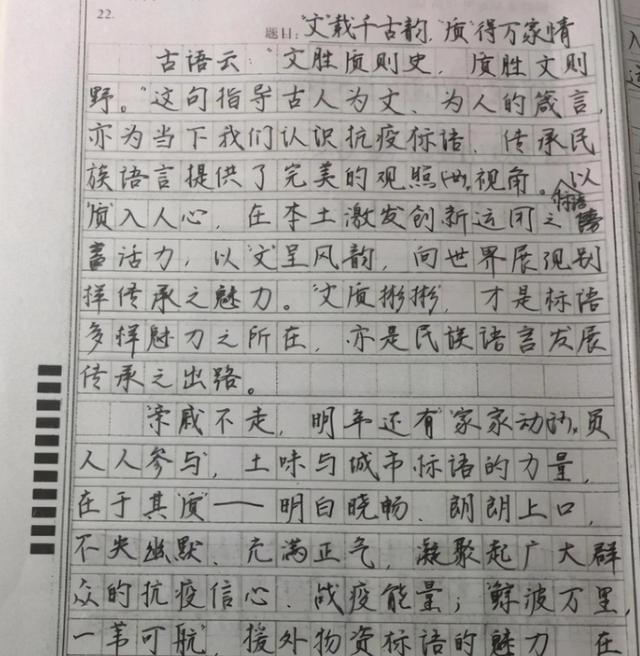 22.
题目:"文"载千古韵,"质"得万家情
古语云:"文胜质则史,质胜文则
野。"这句指导古人为文、为人的箴言,
亦为当下我们认识抗疫标语、传承民
族语言提供了完美的观照视角。以
"质"入人心,在本土激发创新运用之标语
活力,以"文"呈风韵,向世界展现别
样传承之魅力。"文质彬彬",才是标语
多样魅力之所在,亦是民族语言发展
传承之出路。
"亲戚不走,明年还有""家家动员
人人参与",土味与城市标语的力量,
在于其"质"——明白晓畅、朗朗上口,
不失幽默、充满正气,凝聚起广大群
众的抗疫信心、战疫能量;"鲸波万里,
一苇可航",援外物资标语的魅力,在